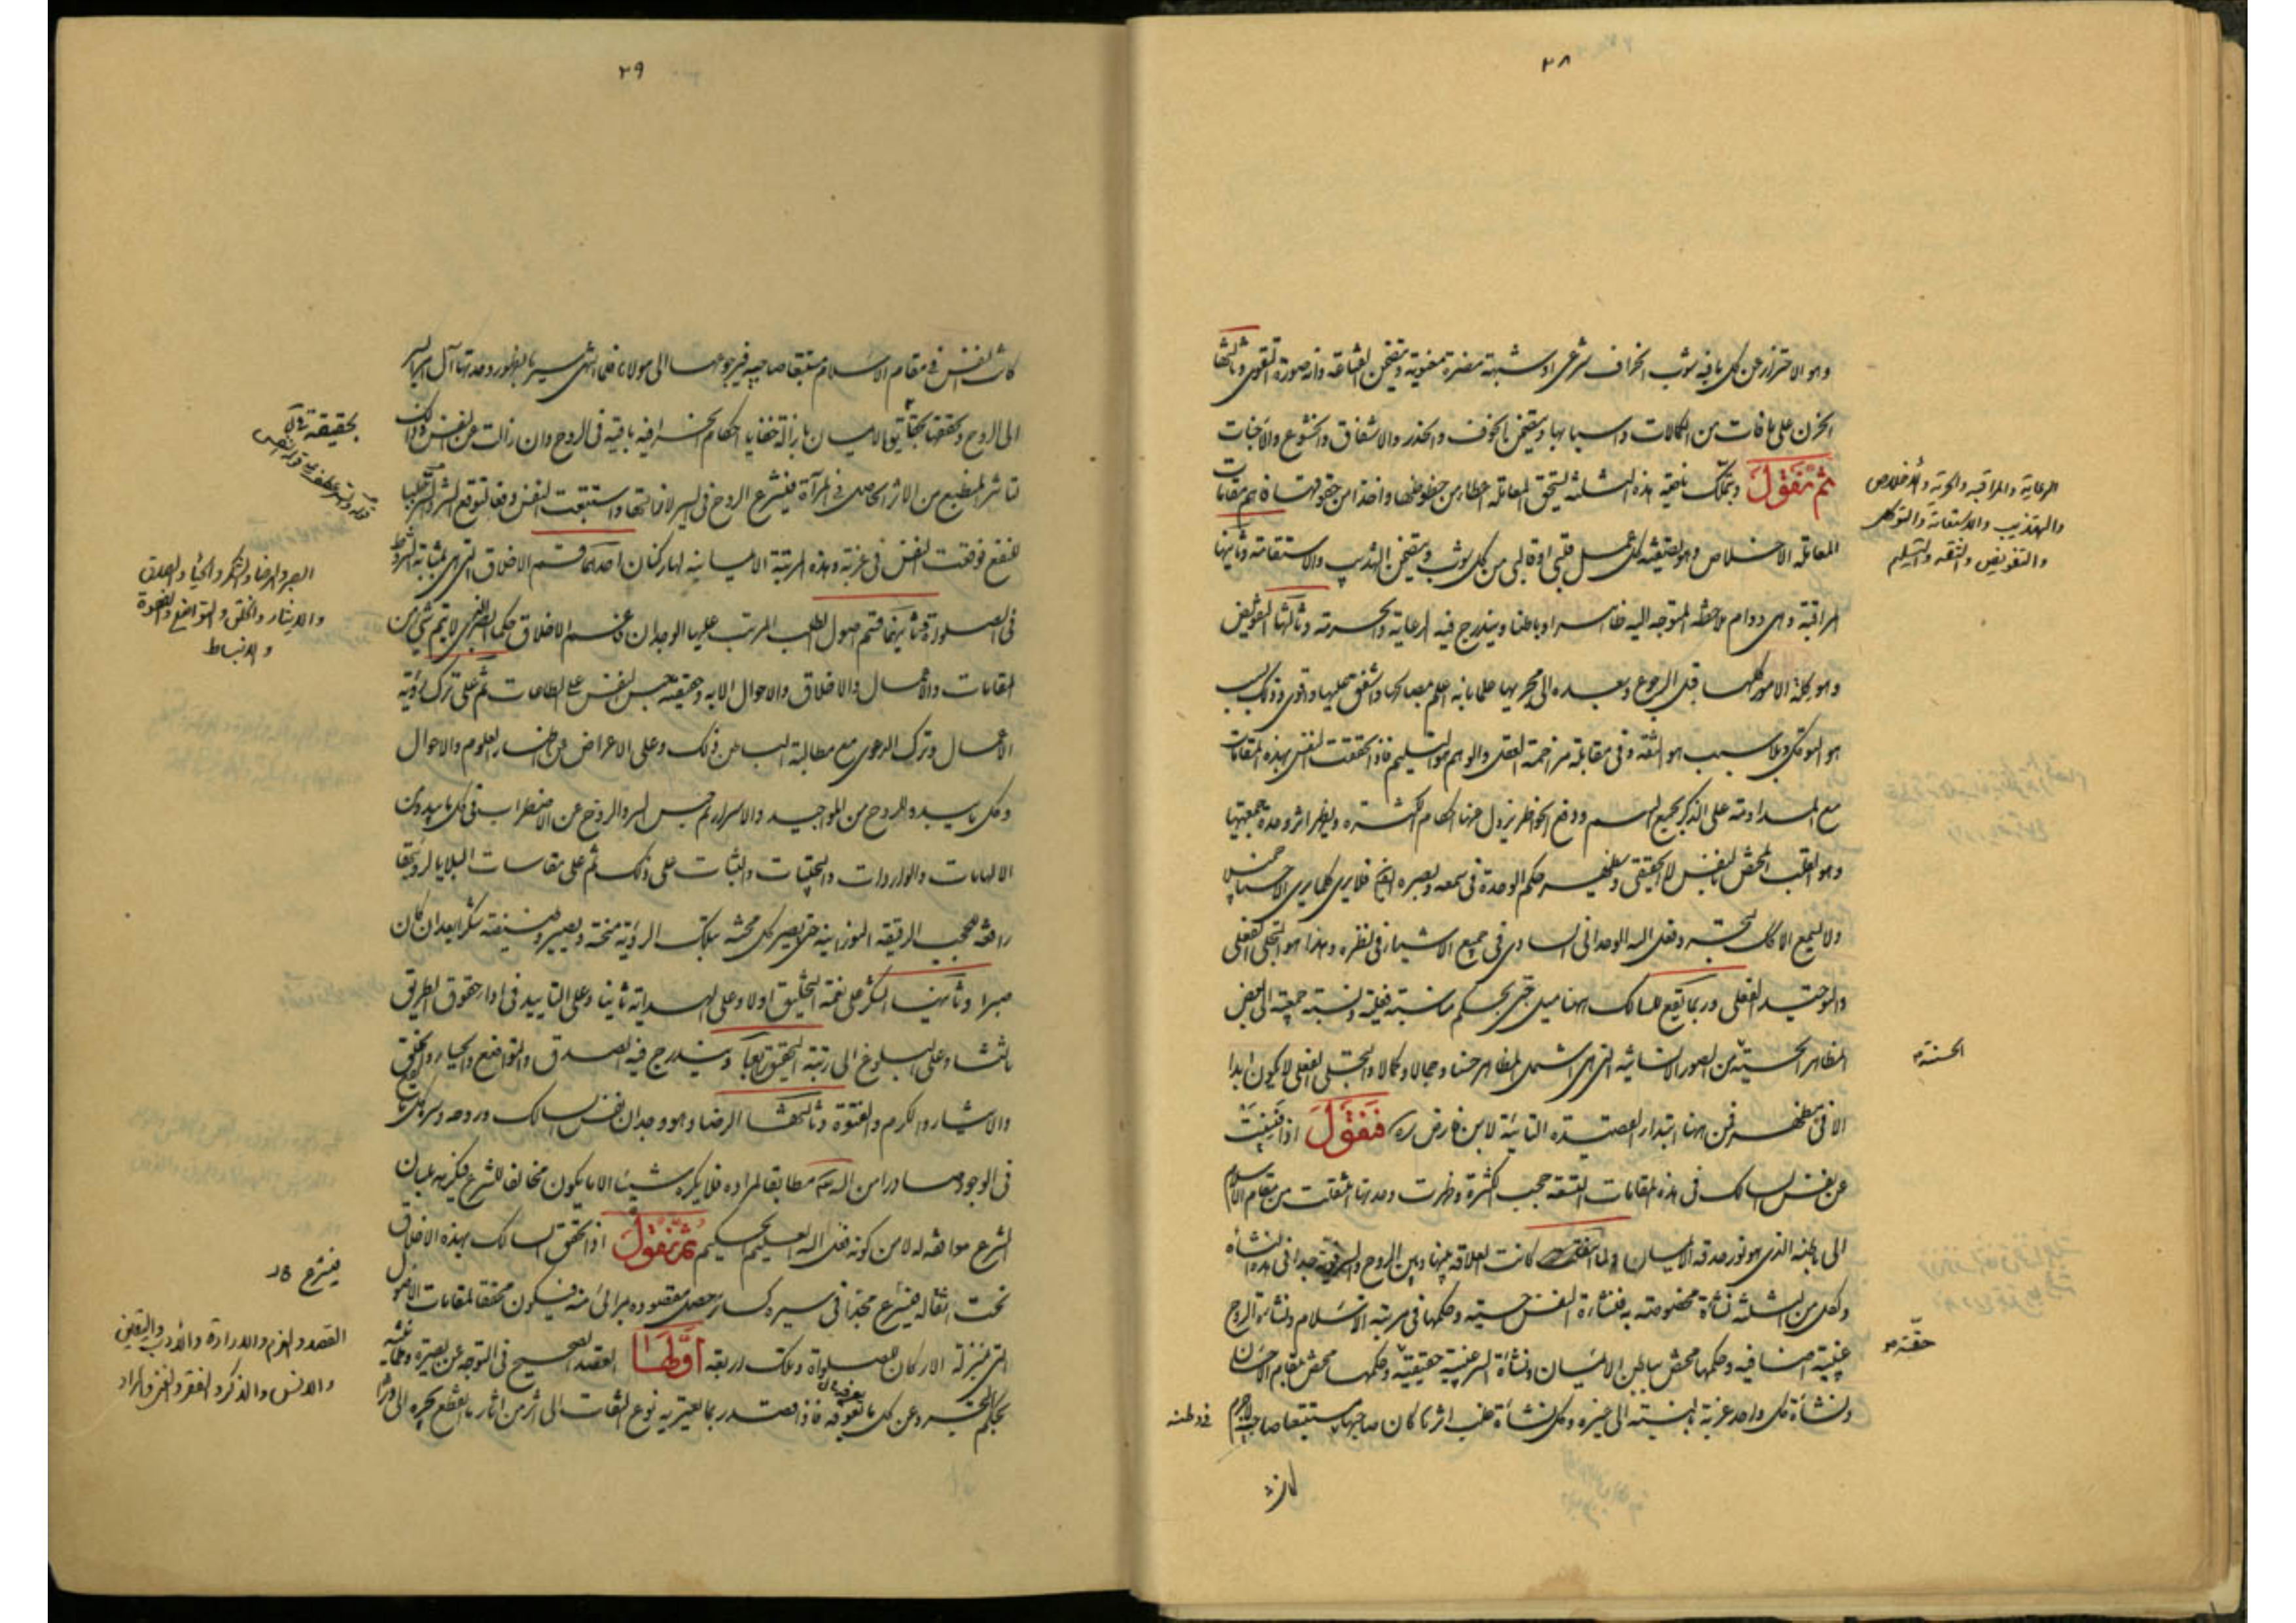 ٢٨
وهو الاحتراز عن كل ما فيه شوب انحراف شرعى او شبهة مضرة معنوية ويتضمن القناعة وانه صورة التقوى وثالثها
الحزن على ما فات من الكمالات واسبابها ويتضمن الخوف والحذر والاشفاق والخشوع والاخبات
ثم نقول وبتملك ناصية هذه الثلثة لتحقق المعاملة اعطاء من حظوظها واخذا من حقوقها فاهم مقامات
المعاملة الاخلاص وهو تصفية كل عمل قلبى او قالبى من كل شوب ويتضمن التهذيب والاستقامة وثانيها
المراقبة وهى دوام ملاحظة المتوجه اليه ظاهرا وباطنا ويندرج فيه الرعاية والحرمة وثالثها التفويض
وهو كلة الامور كلها قبل الرجوع وبعده الى مجريها علما بانه اعلم بمصالحها واشفق عليها واقوى وذلك بسبب
هو التوكل وبلا سبب هو الثقة وفى مقابلة مزاحمة العقل والوهم هو التسليم فاذا تحققت النفس بهذه المقامات
مع المداومة على الذكر بجمع الهم ودفع الخواطر يزول عنها احكام الكثرة ويظهر اثر وحدة جمعيتها
وهو القلب المختص بالنفس لا الحقيقى ويظهر حكم الوحدة فى سمعه وبصره فلا يرى كلما يرى الا حسنا
ولا يسمع الا كذلك لتحققه وفعل الله الوحدانى السارى فى جميع الاشياء فى نظره وهذا هو التجلى الفعلى
والتوحيد الفعلى وربما يقع للسالك ههنا ميل حبى بحكم مناسبة فعلية ونسبة جمعية الى بعض
المظاهر الحسية من الصور الانسانية التى هى اشمل المظاهر حسنا وجمالا وكمالا والتجلى الفعلى لا يكون ابدا
الا فى مظهر فمن ههنا ابتداء القصيدة التائية لابن فارض ره فنقول اذا فنيت
عن نفس السالك فى هذه المقامات التسعة حجب الكثرة وظهرت وحدتها انتقلت من مقام الاسلام
الى باطنه الذى هو نور صدقه الايمان ولما كانت العلاقة بينها وبين الروح والسر قوية جدا فى هذه النشأة
ولكل من الثلثة نشأة مخصوصة به فنشأة النفس حسية وحكمها فى مرتبة الاسلام ونشأة الروح
غيبية اضافية وحكمها مختص بباطن الايمان ونشأة السر غيبية حقيقية وحكمها مختص بمقام الاحسان
ونشأة كل واحد غربة بالنسبة الى غيره وكل نشأة غلب اثرها كان صاحبها مستتبعا صاحبيه لاجرم
الرعاية والمراقبة والحرية والاخلاص
والتهذيب والاستقامة والتوكل
والتفويض والثقة والتسليم
الحسنة
حقة
فى وطنه
كانت
٢٩
كانت النفس فى مقام الاسلام مستتبعا صاحبيه فيرجوعهما الى مولاها فلما انتهى سيرها بظهور وحدتها آل امر السير
الى الروح وتحققها بحقايق الايمان بازالة خفايا احكام انحرافية باقية فى الروح وان زالت عن النفس وذلك
تأثر المنطبع من الاثر الحاصل فى المرآة فيشرع الروح فى السير لازالتها واستتبعت النفس دفعا لتوقع الشر وطلبا
للنفع فوقعت النفس فى غربة وهذه المرتبة الايمانية لها ركنان احدهما قسم الاخلاق التى هى بمثابة الشروط
فى الصلوة وثانيهما قسم اصول الطلب المرتب عليها الوجدان فاهم الاخلاق حكما الصبر اذ لا يتم شىء من
المقامات والاعمال والاخلاق والاحوال الا به وحقيقته حبس النفس على الطاعات ثم على ترك رؤية
الاعمال وترك الدعوى مع مطالبة الباطن ذلك وعلى الاعراض عن اظهار العلوم والاحوال
وكل ما يبده للروح من المواجيد والاسرار ثم حبس السر والروح عن الاضطراب فى كل ما يبدو من
الالهامات والواردات والتجليات والثبات على ذلك ثم على مقاسات البلايا لرؤيتها
رافعة لحجب الرقيقة النورانية حتى يصير كل محنة بتلك الرؤية منحة ويصير وظيفته شكرا بعد ان كان
صبرا وثانيها الشكر على نعمة التخليق اولا وعلى الهداية ثانيا وعلى التأييد فى اداء حقوق الطريق
ثالثا وعلى البلوغ الى رتبة التحقيق رابعا ويندرج فيه الصدق والتواضع والحياء والخلق
والايثار والكرم والفتوة وثالثها الرضا وهو وجدان نفس السالك وروحه وسره كل ما يقع
فى الوجود صادرا من الله مطابقا لمراده فلا يكره شيئا الا ما يكون مخالفا للشرع فيكرهه بلسان
الشرع موافقة له لا من كونه فعل الله العليم الحكيم ثم نقول اذا تحقق السالك بهذه الاخلاق
تحت انتقاله فيشرع مجدا فى سيره كسار حصل مقصوده بمرائى منه فيكون محققا لمقامات الاصول
التى بمنزلة الاركان للصلوة وتلك اربعة اولها القصد الصحيح فى التوجه عن بصيرة وطمأنينة
بحكم التجرد عن كل ما يعوقه فاذا قصد ربما يعتريه نوع التفات الى اثر من اثار ما انقطع تجره الى وراء
بحقيقة
الصبر والرضا والشكر والحياء والصدق
والايثار والخلق والتواضع والفتوة
والانبساط
فيشرع
القصد والعزم والارادة والادب واليقين
والانس والذكر والفقر والغنى والمراد